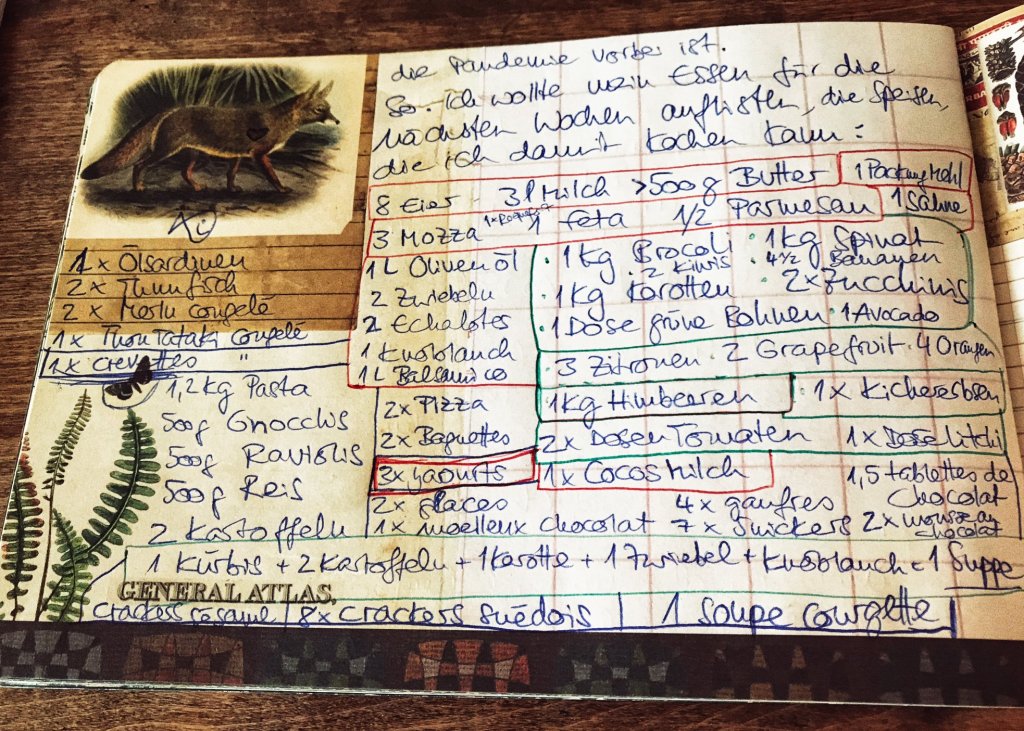 die Pandemie vorbei ist.
So. Ich wollte mein Essen für die
nächsten Wochen auflisten, die Speisen,
die ich damit kochen kann:
8 Eier 3l Milch >500g Butter 1 Packung Mehl
3 Mozza 1 Feta 1/2 Parmesan 1 Sahne
1x Ölsardinen
2x Thunfisch
2x Merlu congelé
1x Thon Tataki congelé
1x crevettes "
1,2kg Pasta
500g Gnocchis
500g Raviolis
500g Reis
2 Kartoffeln
1L Olivenöl
2 Zwiebeln
2 Echalotes
1 Knoblauch
1L Balsamico
2x Pizza
2x Baguettes
3x yaourts
· 1kg Brocoli · 1kg Spinat
· 2 Kiwis · 4 1/2 Bananen
· 1kg Karotten 2x Zucchinis
· 1 Dose grüne Bohnen · 1 Avocado
· 3 Zitronen · 2 Grapefruit · 4 Orangen
1kg Himbeeren 1x Kichererbsen
2x Dosen Tomaten 1x Dose litchi
1x Cocos Milch
1,5 tablettes de
chocolat
2x glaces 4x gaufres
1x moelleux chocolat 7x Snickers 2x mousse au
chocolat
1 Kürbis + 2 Kartoffeln + 1 Karotte + 1 Zwiebel + Knoblauch = 1 Suppe
GENERAL ATLAS.
crackers sésame | 8x crackers suédois | 1 soupe courgette